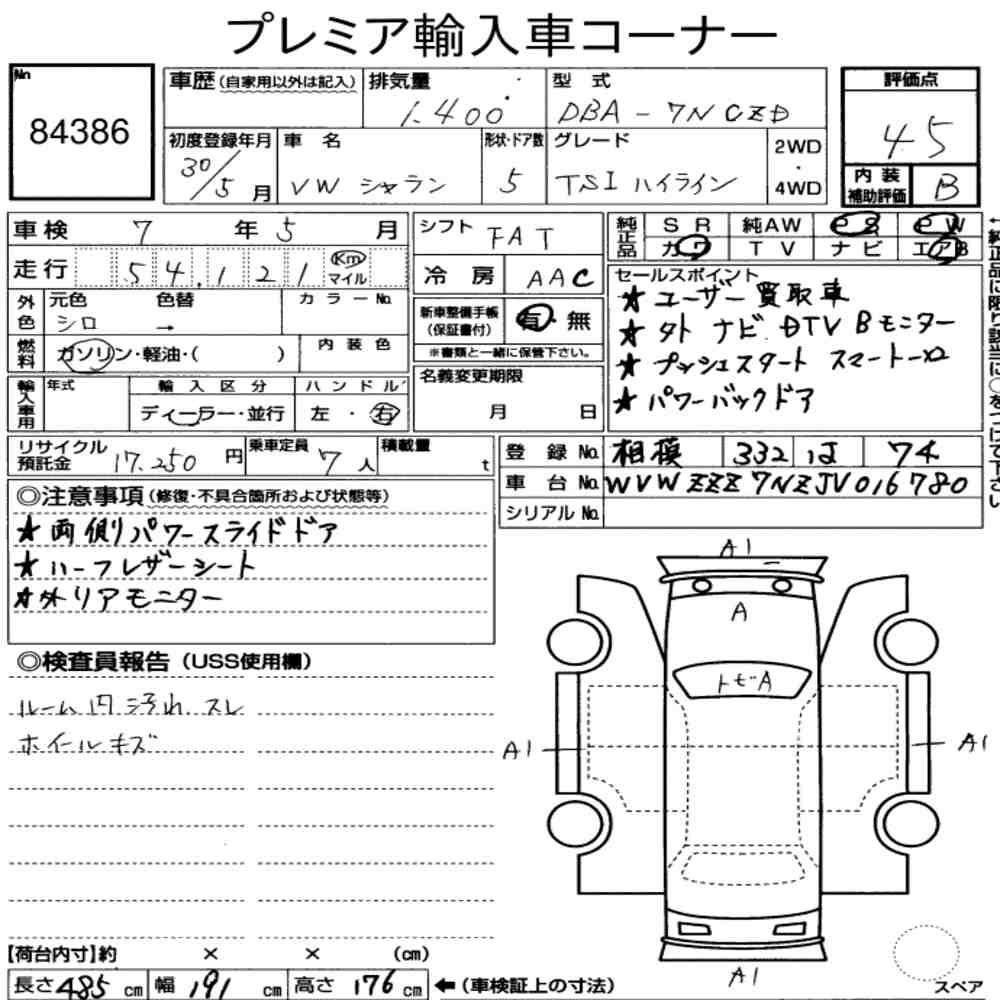 プレミア輸入車コーナー
No
84386
車歴(自家用以外は記入)
排気量
1.400
型 式
DBA-7NCZD
評価点
4.5
初度登録年月
30/5月
車 名
VW シャラン
形状・ドア数
5
グレード
TSI ハイライン
2WD
・
4WD
内 装
補助評価
B
車検 7 年 5 月
走行 54,121 Km マイル
シフト FAT
冷 房 AAC
純正品
SR 純AW PS PW
カワ TV ナビ エアB
←純正品に限り該当に○をつけて下さい
外色
元色 シロ
色替 →
カラーNo.
燃料
ガソリン・軽油・( )
内 装 色
新車整備手帳
(保証書付)
有・無
※書類と一緒に保管下さい。
輸入車用
年式
輸 入 区 分
ディーラー・並行
ハ ン ド ル
左 ・ 右
名義変更期限
月 日
セールスポイント
★ユーザー買取車
★外 ナビ.DTV Bモニター
★プッシュスタート スマートーキー
★パワーバックドア
リサイクル
預託金 17.250 円
乗車定員 7人
積載量 t
登 録 No. 相模 332 は 74
車 台 No. WVWZZZ7NZJV016780
シリアルNo.
◎注意事項(修復・不具合箇所および状態等)
★両側パワースライドドア
★ハーフレザーシート
★外リアモニター
◎検査員報告(USS使用欄)
ルーム内汚れ.スレ
ホイールキズ
A1
A
トビA
A1
A1
A1
スペア
【荷台内寸】約 × × (cm)
長さ485 cm 幅 191 cm 高さ 176 cm ←(車検証上の寸法)